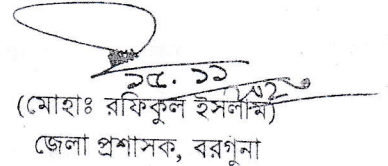 ১৫.১১
(মোহাঃ রফিকুল ইসলাম)
জেলা প্রশাসক, বরগুনা